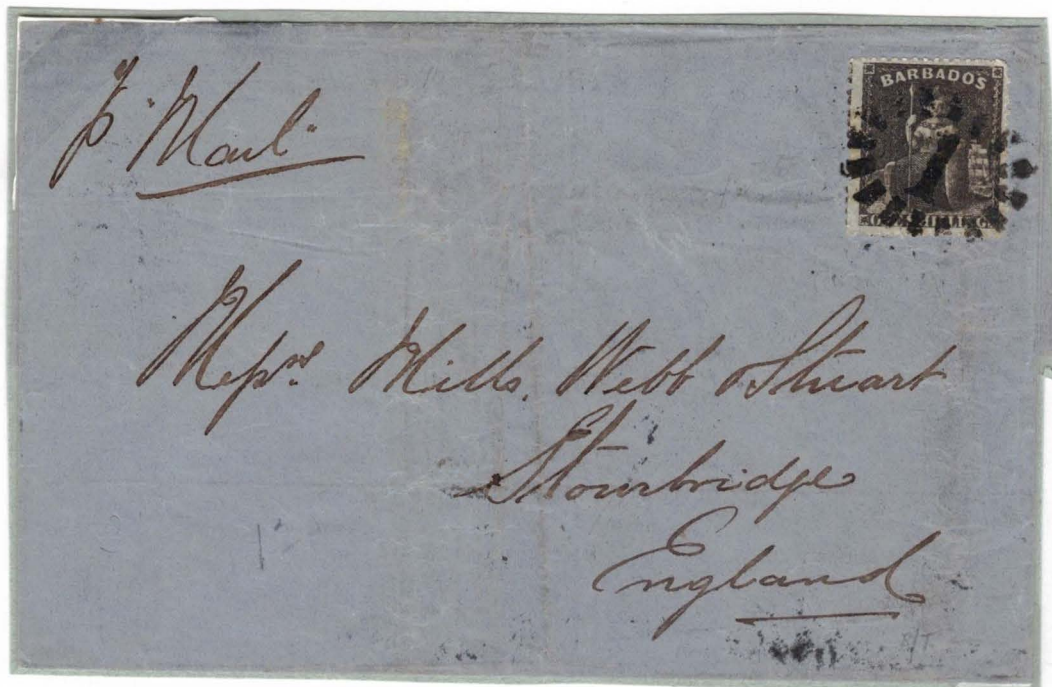 p "Mail"
BARBADOS
ONE SHILLING
1
Messrs Mills, Webb & Stuart
Stourbridge
England